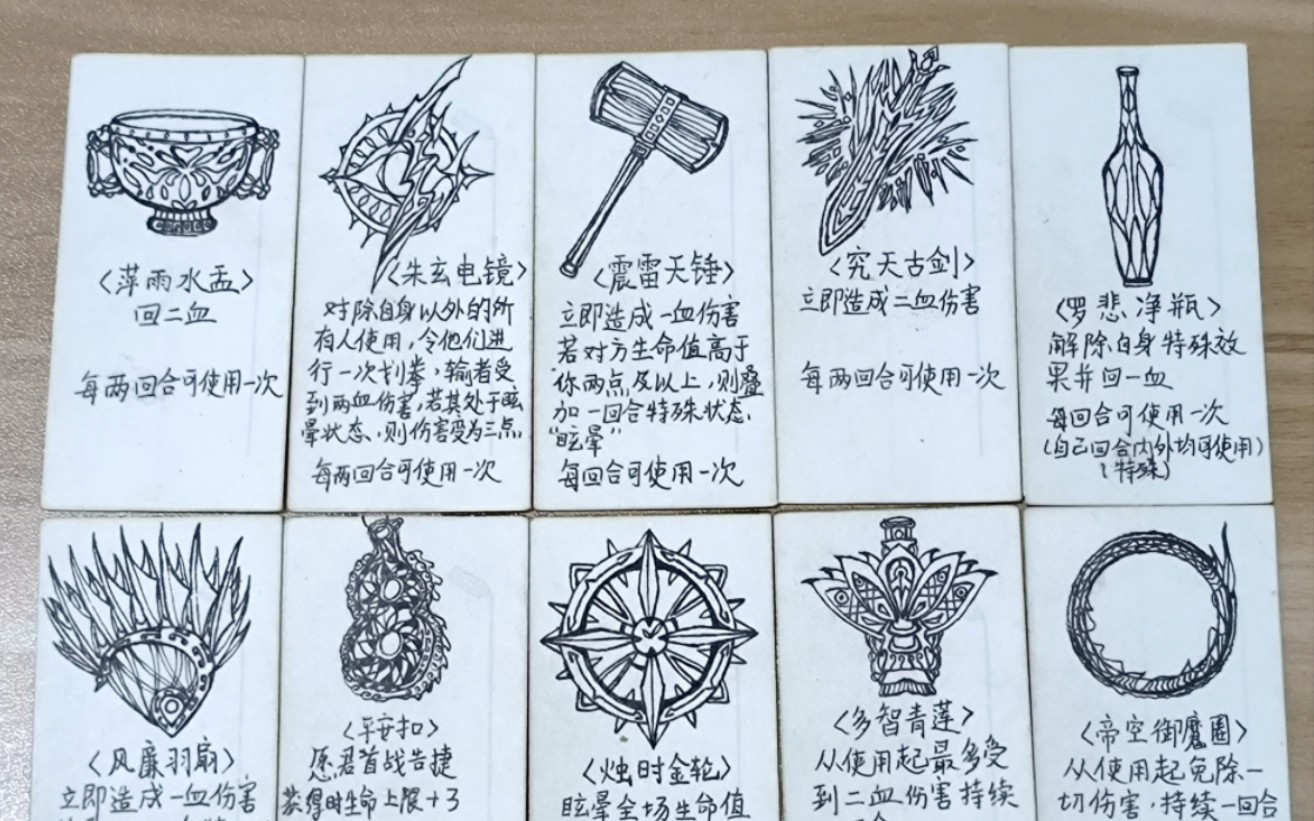 〈萍雨水盂〉
回二血
每两回合可使用一次
〈朱玄电镜〉
对除自身以外的所
有人使用，令他们进
行一次划拳，输者受
到两血伤害，若其处于眩
晕状态，则伤害变为三点
每两回合可使用一次
〈震雷天锤〉
立即造成一血伤害
若对方生命值高于
你两点及以上，则叠
加一回合特殊状态
“眩晕”
每回合可使用一次
〈究天古剑〉
立即造成二血伤害
每两回合可使用一次
〈罗悲净瓶〉
解除自身特殊效
果并回一血
每回合可使用一次
(自己回合内外均可使用)
(特殊)
〈风廉羽扇〉
立即造成一血伤害
〈平安扣〉
愿君首战告捷
获得时生命上限+3
〈烛时金轮〉
眩晕全场生命值
〈多智青莲〉
从使用起最多受
到二血伤害持续
〈帝空御魔圈〉
从使用起免除一
切伤害，持续一回合